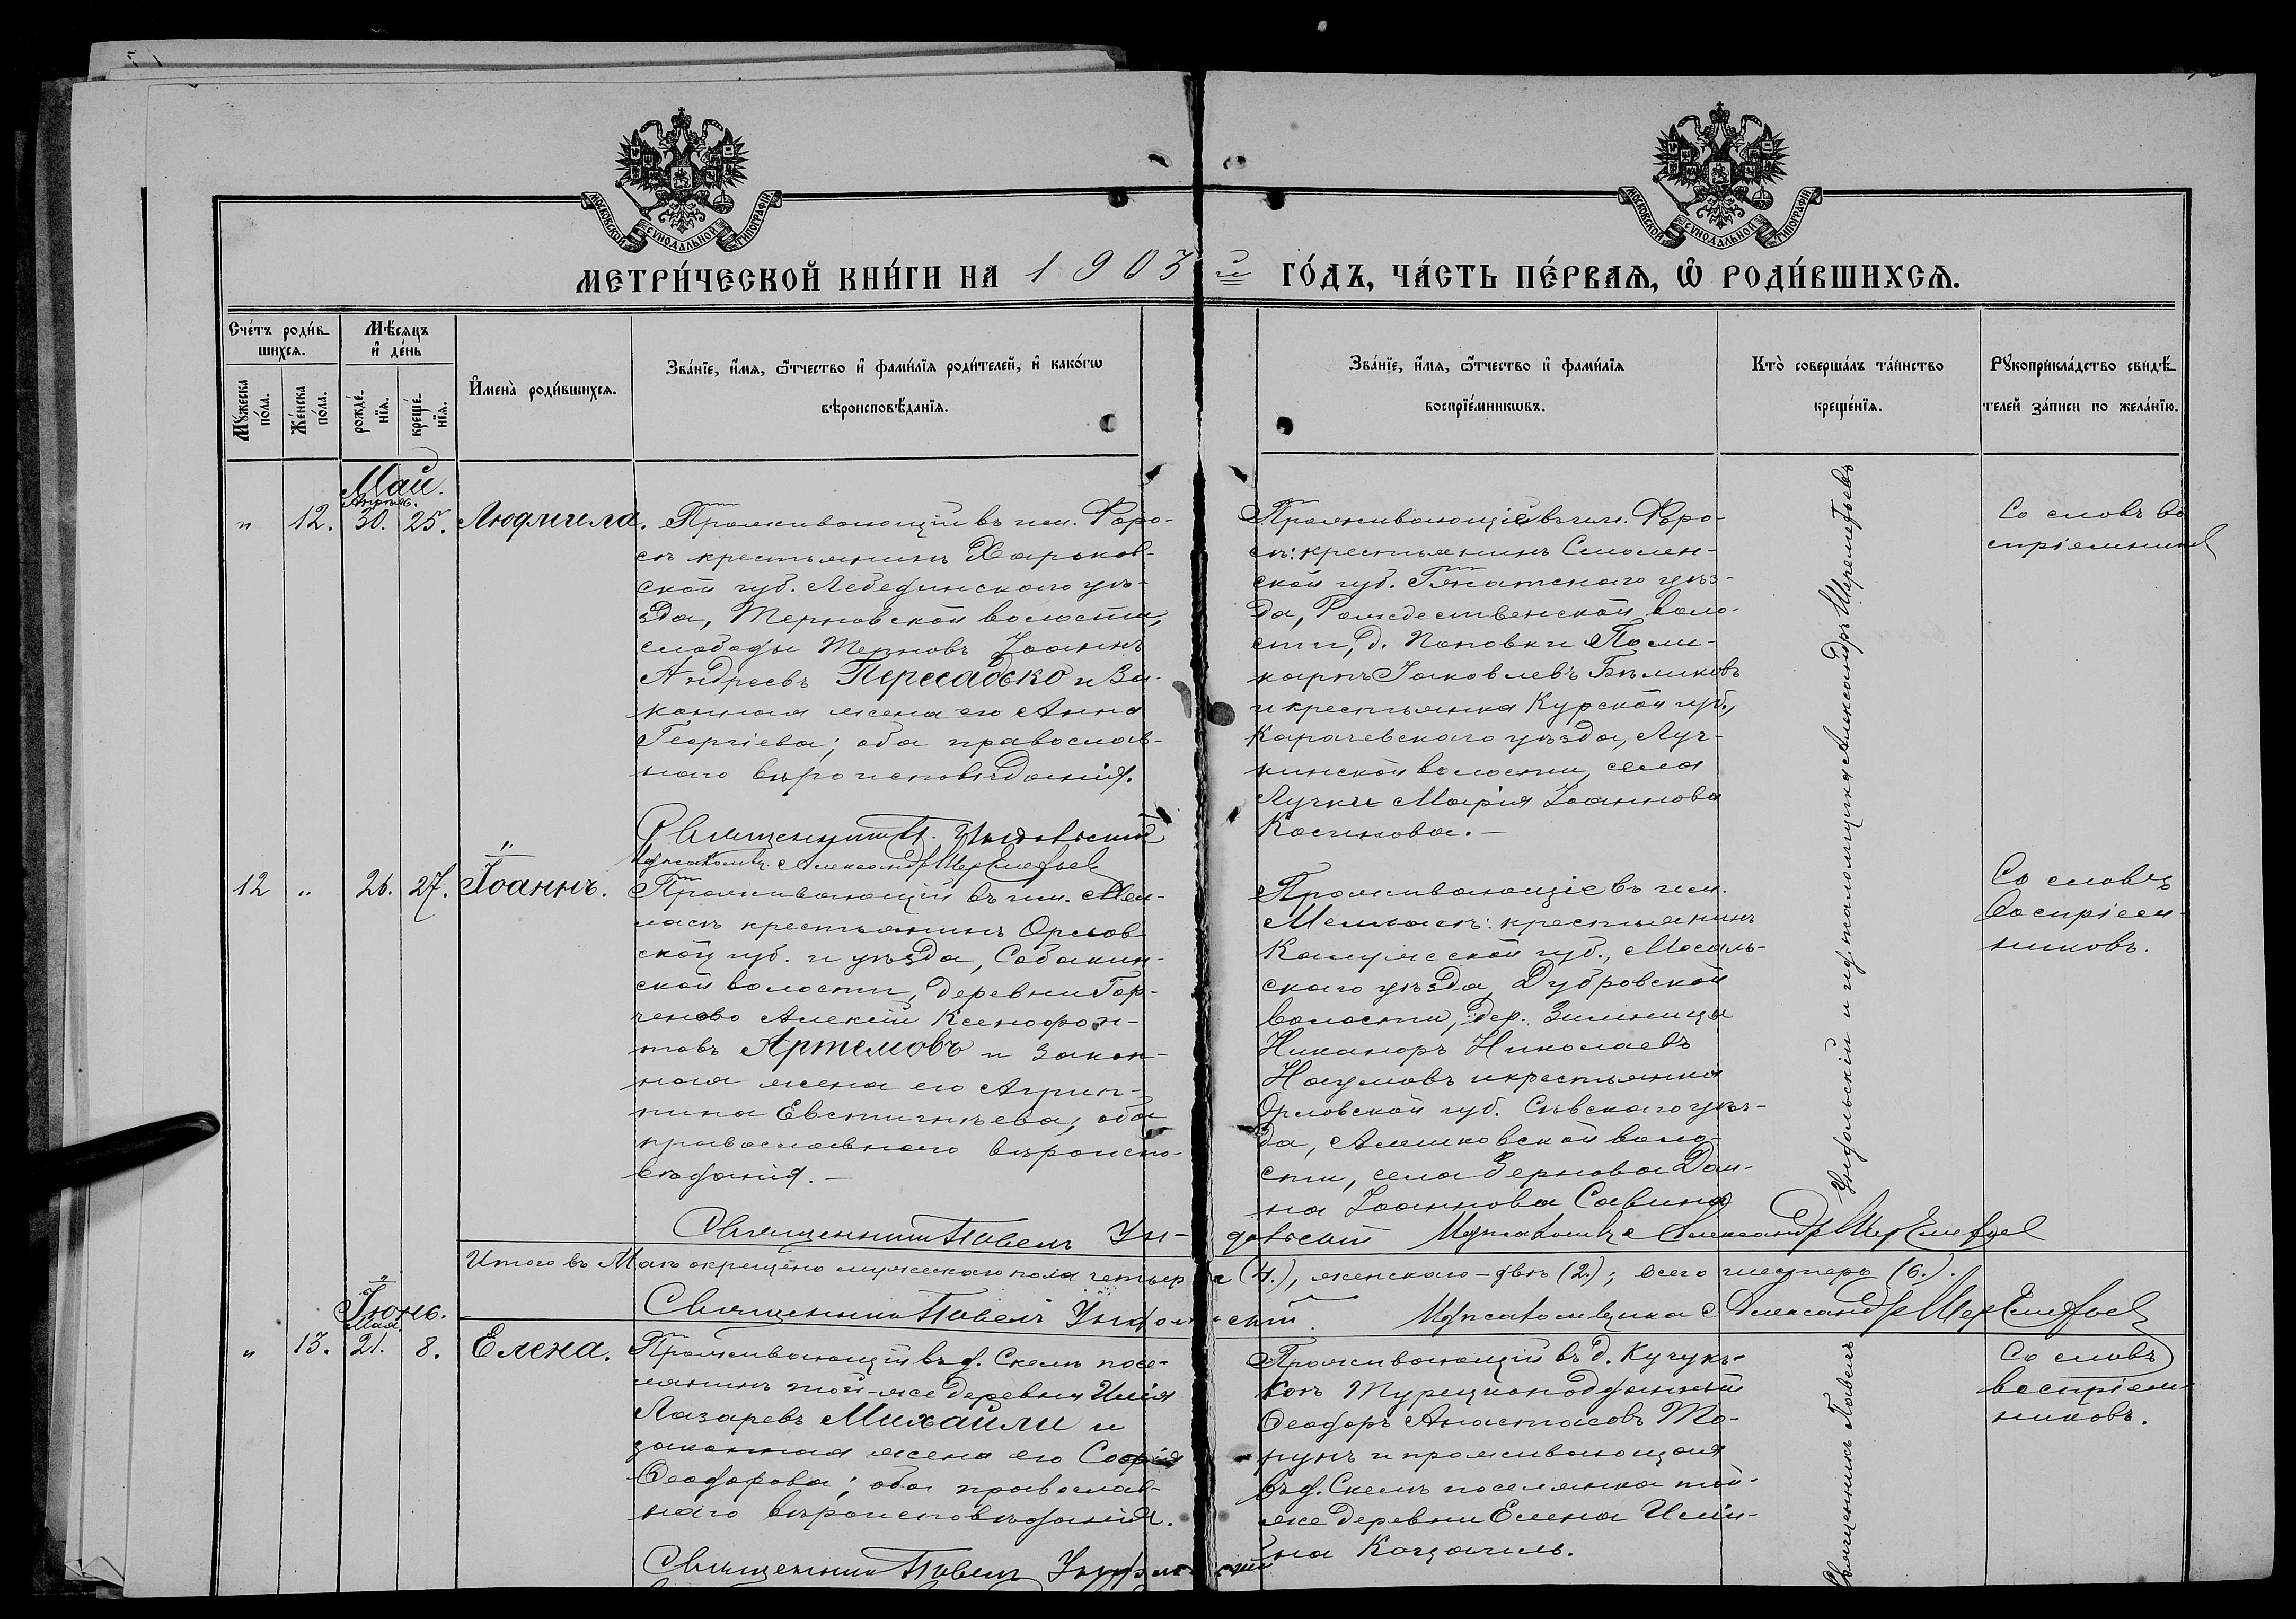 МОСКОВСКОЙ СУНОДАЛЬНОЙ ТИПОГРАФІИ
МОСКОВСКОЙ СУНОДАЛЬНОЙ ТИПОГРАФІИ
МЕТРИ́ЧЕСКОЙ КНИ́ГИ НА 1903 й ГО́ДЪ, ЧА́СТЬ ПЕ́РВАѦ, Ѡ РОДИ́ВШИХСѦ.
Сче́тъ роди́в-
шихсѧ.
Мѣ́сѧцъ
и де́нь
Мꙋ́жеска
по́ла.
Же́нска
по́ла.
рожде́-
нїѧ.
креще́-
нїѧ.
Имена̀ роди́вшихсѧ.
Зва́нїе, и́мѧ, ѻ́тчество и фами́лїѧ роди́телей, и како́гѡ
вѣроисповѣ́данїѧ.
Зва́нїе, и́мѧ, ѻ́тчество и фами́лїѧ
воспрїе́мникѡвъ.
Кто̀ соверша́лъ та́инство
креще́нїѧ.
Рꙋкоприкла́дство свидѣ́-
телей за́писи по жела́нїю.
Май.
Апрѣль.
" 12. 30. 25. Людмила.
Проживающій въ им. Форо-
съ крестьянинъ Харьков-
ской губ. Лебединскаго уѣ-
зда, Терновской волости,
слободы Терновъ Іоаннъ
Андреевъ Пересадько и за-
конная жена его Анна
Георгіева; оба православ-
наго вѣроисповѣданія.
Священникъ П. Ундольскій
Псаломщ. Александръ Шереметьевъ
Проживающіе въ им. Форо-
съ: крестьянинъ Смолен-
ской губ. Гжатскаго уѣз-
да, Рождественской воло-
сти, д. Поповки Поли-
карпъ Іаковлевъ Бѣликовъ
и крестьянка Курской губ.,
Карачевскаго уѣзда, Луч-
кинской волости, села
Лучки Марія Іоаннова
Косинова.—
Ундольскій и и.д. псаломщика Александръ Шереметьевъ
Со словъ во
спріемник
"
12 " 26. 27. Іоаннъ.
Проживающій въ им. Мел-
ласъ крестьянинъ Орлов-
ской губ. и уѣзда, Собакин-
ской волости, деревни Гор-
чеково Алексій Ксенофон-
товъ Артемовъ и закон-
ная жена его Агрип-
пина Евстигнѣева; оба
православнаго вѣроиспо-
вѣданія.—
Проживающіе въ им.
Мелласъ: крестьянинъ
Калужской губ., Мосаль-
скаго уѣзда, Дубровской
волости, дер. Зимницы
Никаноръ Николаевъ
Наумовъ и крестьянка
Орловской губ. Сѣвскаго уѣз-
да, Алешковской воло-
сти, села Зернова Дом-
на Іоаннова Савина
Со словъ
воспріем-
никовъ.
Священникъ Павелъ Ундольскій Псаломщика Александръ Шереметьев
Итого въ Маѣ окрещено мужескаго пола четыре (4.), женскаго—двѣ (2.); всего шестеро (6.).
Священникъ Павелъ Ундольскій. Псаломщика Александръ Шереметьев
"
Іюнь.
Мая.
" 13. 21. 8. Елена.
Проживающій въ д. Скеля посе-
лянинъ той-же деревни Илія
Лазаревъ Михайли и
законная жена его Софія
Ѳеодорова; оба православ-
наго вѣроисповѣданія.
Священникъ Павелъ Ундольскій
Проживающій въ д. Кучукъ-
кой Турецкоподданный
Ѳеодоръ Анастасовъ То-
рунъ и проживающая
въ д. Скеля поселянка той-
же деревни Елена Иліи-
на Коцагиль.
Священникъ Павелъ
Со словъ
воспріем-
никовъ.